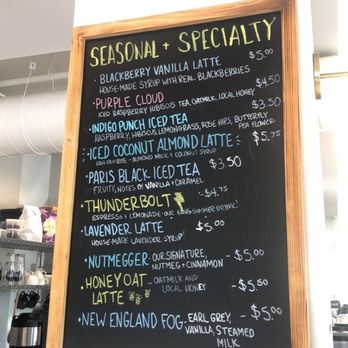 SEASONAL + SPECIALTY
· BLACKBERRY VANILLA LATTE - $5.00
HOUSE-MADE SYRUP WITH REAL BLACKBERRIES
· PURPLE CLOUD $4.50
ICED RASPBERRY HIBISCUS TEA, OATMILK, LOCAL HONEY
· INDIGO PUNCH ICED TEA $3.50
RASPBERRY, HIBISCUS, LEMONGRASS, ROSE HIPS, BUTTERFLY PEA FLOWER
· ICED COCONUT ALMOND LATTE - $5.75
FAN FAVORITE - ALMOND MILK + COCONUT SYRUP
· PARIS BLACK ICED TEA $3.50
FRUITY, NOTES OF VANILLA + CARAMEL
· THUNDERBOLT - $4.75
ESPRESSO + LEMONADE - OUR FAVE SUMMER DRINK!
· LAVENDER LATTE - $5.00
HOUSE-MADE LAVENDER SYRUP
· NUTMEGGER - OUR SIGNATURE, - $5.00
NUTMEG + CINNAMON
· HONEY OAT - OATMILK AND - $5.50
LATTE LOCAL HONEY
· NEW ENGLAND FOG - EARL GREY, - $5.00
VANILLA, STEAMED
MILK